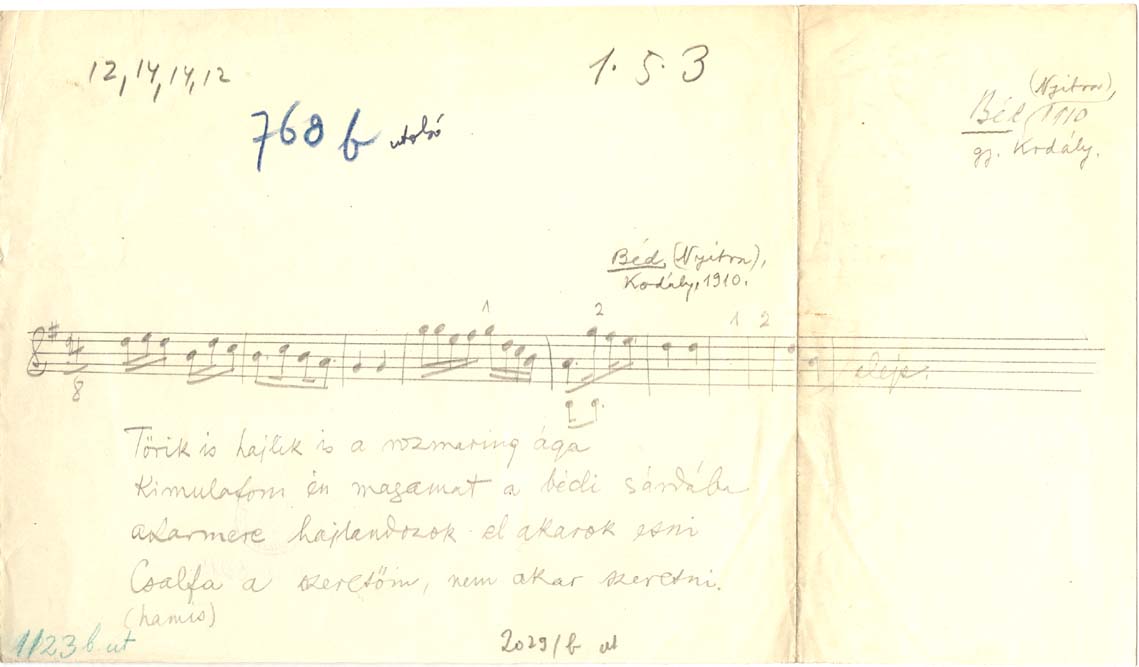 12, 14, 14, 12
1. 5. 3
768 b utolsó
(Nyitra),
Béd, 1910
gy. Kodály.
Béd, (Nyitra),
Kodály, 1910.
1
2
1 2
8
eleje.
Törik is hajlik is a rozmaring ága
Kimulatom én magamat a bédi sárdába
akarmere hajlandozok el akarok esni
Csalfa a szeretőm, nem akar szeretni.
(hamis)
1/23 b ut
2029/b ut